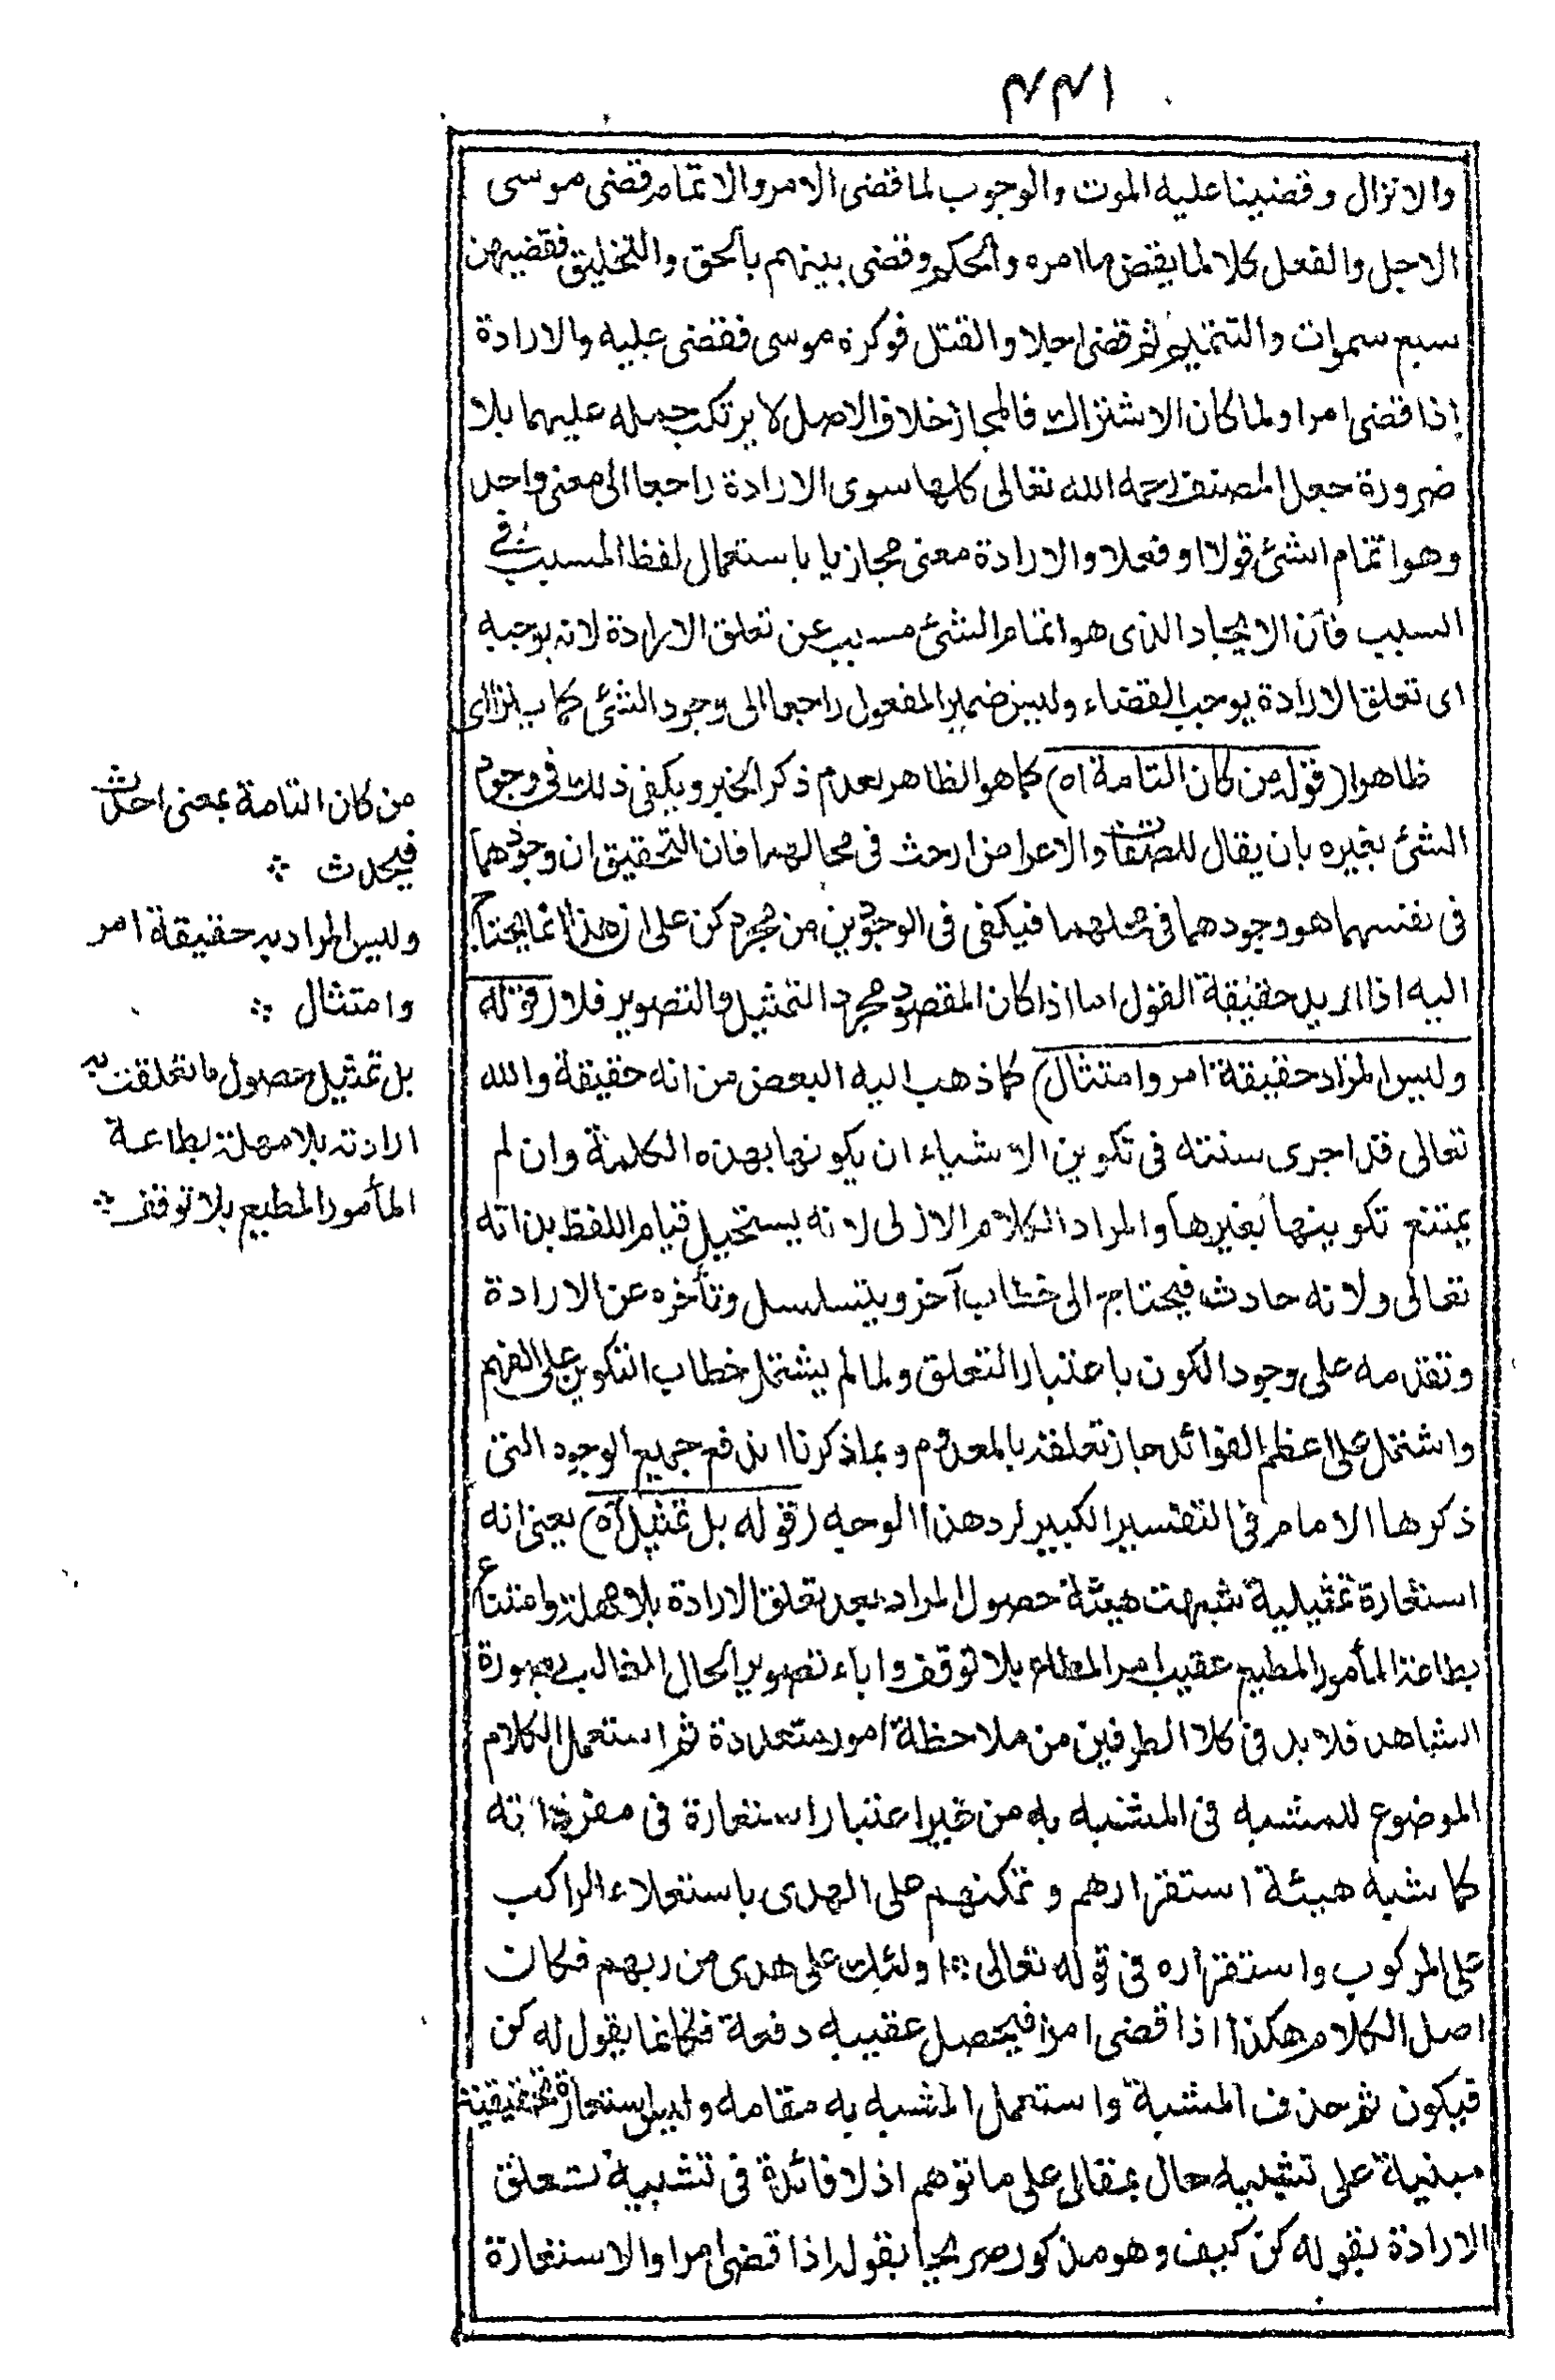 ۴۴۱
والانزال وقضينا عليه الموت والوجوب لما قضى الامر والاتمام قضى موسى
الاجل والفعل كلا لما يقض ما امره والحكم وقضى بينهم بالحق والتخليق فقضيهن
سبع سموات والتتميم ثم قضى اجلا والقتل فوكزه موسى فقضى عليه والارادة
اذا قضى امرا ولما كان الاشتراك فالمجاز خلاف الاصل لا يرتكب حمله عليهما بلا
ضرورة جعل المصنف رحمه الله تعالى كلها سوى الارادة راجعا الى معنى واحد
وهو اتمام الشئ قولا او فعلا والارادة معنى مجازيا باستعمال لفظ المسبب في
السبب فان الايجاد الذى هو اتمام الشئ مسبب عن تعلق الارادة لانه يوجبه
اى تعلق الارادة يوجب القضاء وليس ضمير المفعول راجعا الى وجود الشئ كما يتراأى
ظاهرا (قوله من كان التامة اه) كما هو الظاهر بعدم ذكر الخبر ويكفى ذلك فى وجود
الشئ بغيره بان يقال للصفات والاعراض احدث فى محالهما فان التحقيق ان وجودهما
فى نفسهما هو وجودهما فى محلهما فيكفى فى الوجودين من مجرد كن على ان هذا انما يحتاج
اليه اذا اريد حقيقة القول اما اذا كان المقصود مجرد التمثيل والتصوير فلا (قوله
وليس المراد حقيقة امر وامتثال) كما ذهب اليه البعض من انه حقيقة والله
تعالى قد اجرى سنته فى تكوين الاشياء ان يكونها بهذه الكلمة وان لم
يمتنع تكوينها بغيرها والمراد الكلام الازلى لانه يستحيل قيام اللفظ بذاته
تعالى ولانه حادث فيحتاج الى خطاب آخر ويتسلسل وتأخره عن الارادة
وتقدمه على وجود الكون باعتبار التعلق ولما لم يشتمل خطاب التكوين على الفهم
واشتمل على اعظم الفوائد جاز تعلقه بالمعدوم وبما ذكرنا اندفع جميع الوجوه التى
ذكرها الامام فى التفسير الكبير لرد هذا الوجه (قوله بل تمثيل اه) يعنى انه
استعارة تمثيلية شبهت هيئة حصول المراد بعد تعلق الارادة بلا مهلة وامتناع
بطاعة المأمور المطيع عقيب امر المطاع بلا توقف واباء تصوير الحال الغائب بصورة
الشاهد فلا بد فى كلا الطرفين من ملاحظة امور متعددة ثم استعمل الكلام
الموضوع للمشبه فى المشبه به من غير اعتبار استعارة فى مفرداته
كما شبه هيئة استقرارهم وتمكنهم على الهدى باستعلاء الراكب
على المركوب واستقراره فى قوله تعالى اولئك على هدى من ربهم فكان
اصل الكلام هكذا اذا قضى امرا فيحصل عقيبه دفعة فكانما يقول له كن
فيكون ثم حذف المشبه واستعمل المشبه به مقامه وليس استعارة تحقيقية
مبنية على تشبيه حال بمقال على ما توهم اذ لا فائدة فى تشبيه تعلق
الارادة بقوله كن كيف وهو مذكور صريحا بقوله اذا قضى امرا والاستعارة
من كان التامة بمعنى احدث
فيحدث
وليس المراد به حقيقة امر
وامتثال
بل تمثيل حصول ما تعلقت به
ارادته بلا مهلة بطاعة
المأمور المطيع بلا توقف